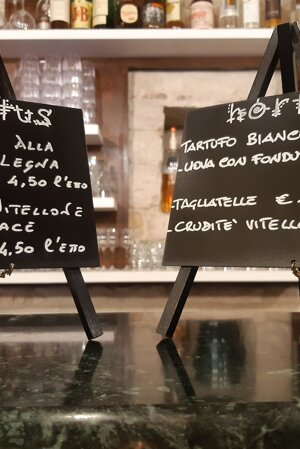 ALLA
LEGNA
4,50 l'ETTO
VITELLONE
4,50 l'ETTO
TARTUFO BIANC
-UOVA CON FONDU
-TAGLIATELLE €.
-CRUDITE' VITELL